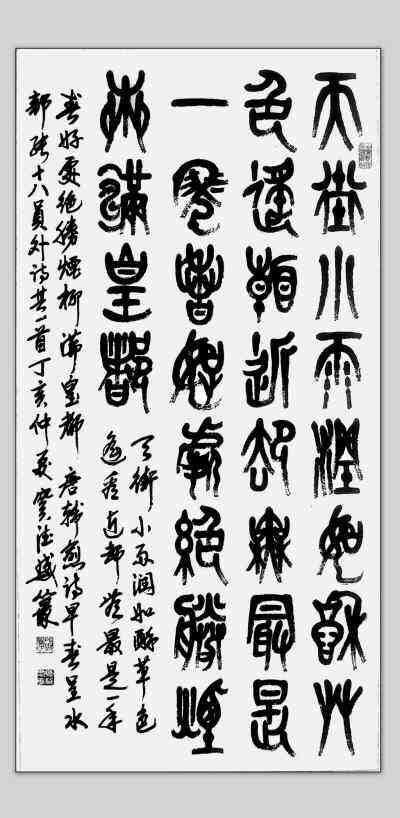 天街小雨潤如酥艸
色遙看近卻無最是
一年春好處絕勝煙
柳滿皇都
天街小雨潤如酥草色
遙看近却無最是一年
春好處絕勝煙柳滿皇都 唐韓愈詩早春呈水
部張十八員外詩其一首丁亥仲夏篆